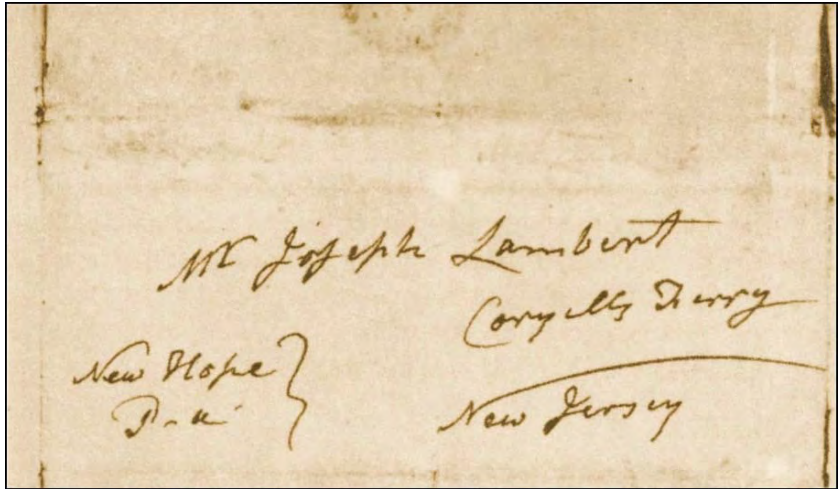 Mr Joseph Lambert
Coryells Ferry
New Hope
Pa
New Jersey